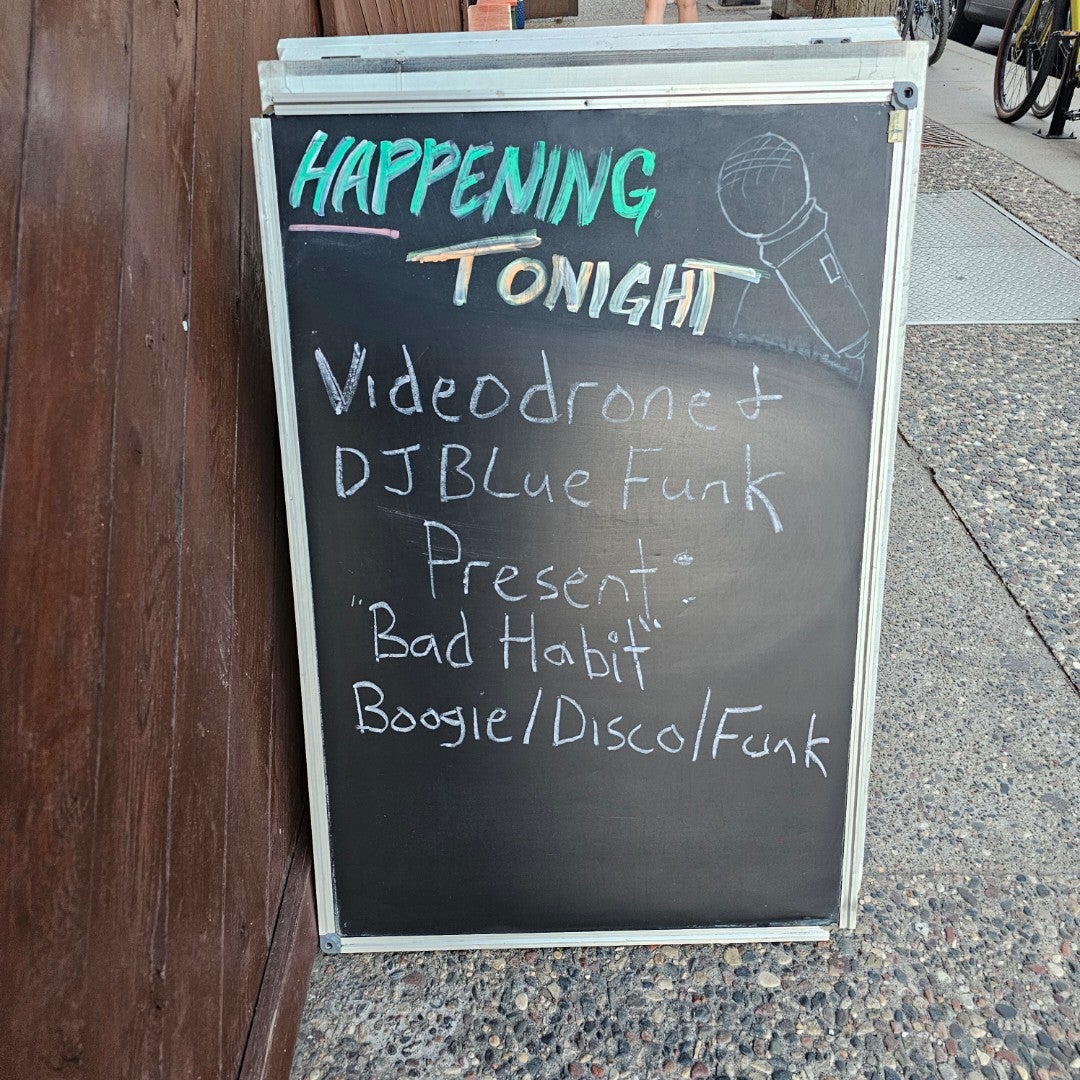 HAPPENING
TONIGHT
Videodrone &
DJ BLue Funk
Present:
"Bad Habit"
Boogie/Disco/Funk